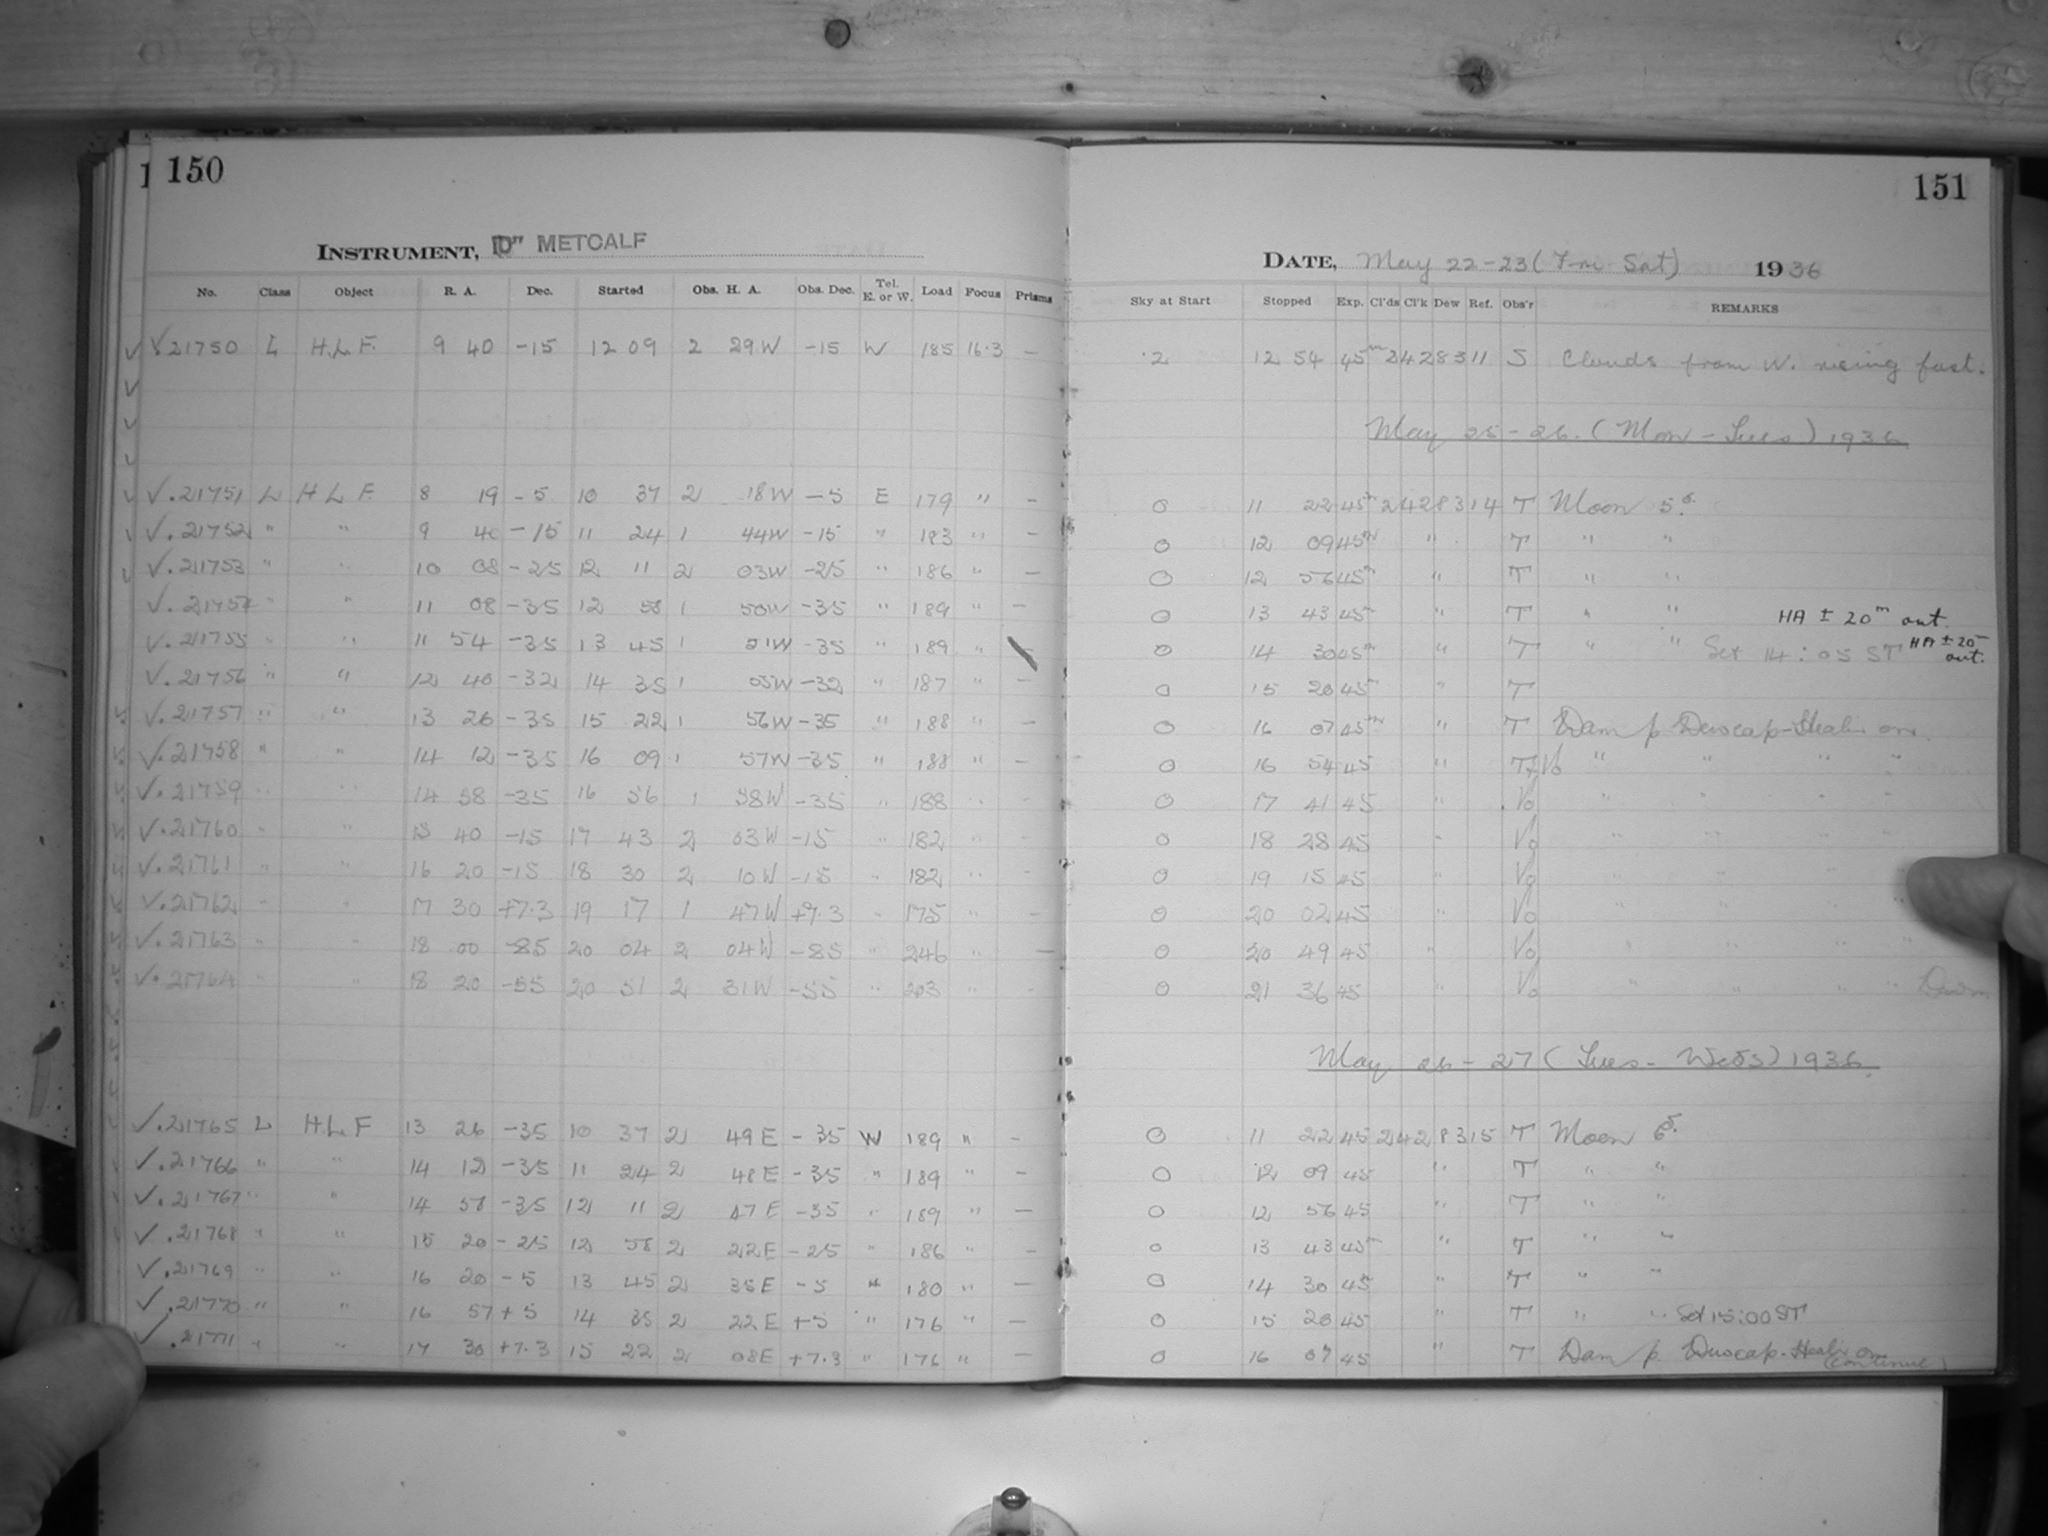 150
151
INSTRUMENT, 10" METCALF
DATE, May 22-23 (Fri Sat) 1936
No. Class Object R. A. Dec. Started Obs. H. A. Obs. Dec. Tel. E. or W. Load Focus Prisms Sky at Start Stopped Exp. Cl'ds Cl'k Dew Ref. Obs'r REMARKS
✓ 21750 L H.L.F. 9 40 -15 12 09 2 29 W -15 W 185 16.3 — 2 12 54 45m 2428311 S Clouds from W. rising fast.
May 25-26. (Mon-Tues) 1936
✓.21751 L H L F 8 19 -5 10 37 2 18 W -5 E 179 " - 0 11 22 45m 2428314 T Moon 5d.
✓.21752 " " 9 40 -15 11 24 1 44W -15 " 183 " - 0 12 09 45m " T " "
✓.21753 " " 10 08 -25 12 11 2 03W -25 " 186 " — 0 12 56 45m " T " "
✓.21754 " " 11 08 -35 12 58 1 50W -35 " 189 " — 0 13 43 45m " T " " HA ± 20m out.
✓.21755 " " 11 54 -35 13 45 1 51W -35 " 189 " - 0 14 30 45m " T " " Set 14:05 ST HA ± 20m out.
✓.21756 " " 12 40 -32 14 35 1 55W -32 " 187 " - 0 15 20 45m " T
✓.21757 " " 13 26 -35 15 22 1 56W -35 " 188 " - 0 16 07 45m " T Dam p. Dewcap-Heater on.
✓.21758 " " 14 12 -35 16 09 1 57W -35 " 188 " - 0 16 54 45 " T+Vo " " " "
✓.21759 " " 14 58 -35 16 56 1 58W -35 " 188 " - 0 17 41 45 " Vo " " " "
✓.21760 " " 15 40 -15 17 43 2 03W -15 " 182 " - 0 18 28 45 " Vo " " " "
✓.21761 " " 16 20 -15 18 30 2 10W -15 " 182 " - 0 19 15 45 " Vo " " " "
✓.21762 " " 17 30 +7.3 19 17 1 47W +7.3 " 175 " - 0 20 02 45 " Vo " " " "
✓.21763 " " 18 00 -85 20 04 2 04W -85 " 246 " — 0 20 49 45 " Vo " " " "
✓.21764 " " 18 20 -55 20 51 2 31W -55 " 203 " - 0 21 36 45 " Vo " " " " Dawn
May 26-27 (Tues-Weds) 1936.
✓.21765 L H.L.F 13 26 -35 10 37 2 49 E -35 W 189 " - 0 11 22 45 2428315 T Moon 6d.
✓.21766 " " 14 12 -35 11 24 2 48E -35 " 189 " - 0 12 09 45 " T " "
✓.21767 " " 14 58 -35 12 11 2 47E -35 " 189 " — 0 12 56 45 " T " "
✓.21768 " " 15 20 -25 12 58 2 22E -25 " 186 " - 0 13 43 45m " T " "
✓.21769 " " 16 20 -5 13 45 2 35E -5 " 180 " — 0 14 30 45 " T " "
✓.21770 " " 16 57 +5 14 35 2 22E +5 " 176 " — 0 15 20 45 " T " " Set 15:00 ST
✓.21771 " " 17 30 +7.3 15 22 2 08E +7.3 " 176 " — 0 16 07 45 " T Dam p. Dewcap-Heater on
(continue)